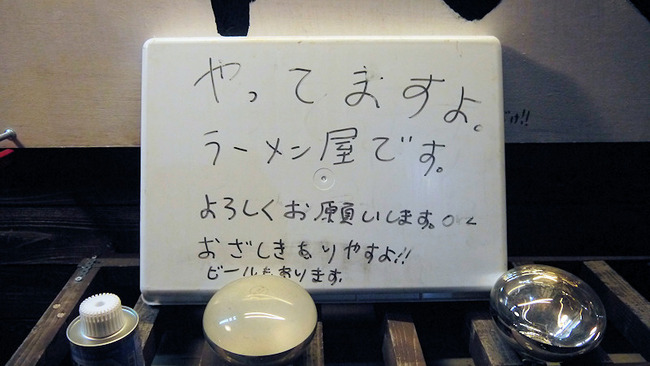 やってますよ。
ラーメン屋です。
よろしくお願いします。
おざしきありやすよ!!
ビールもあります。